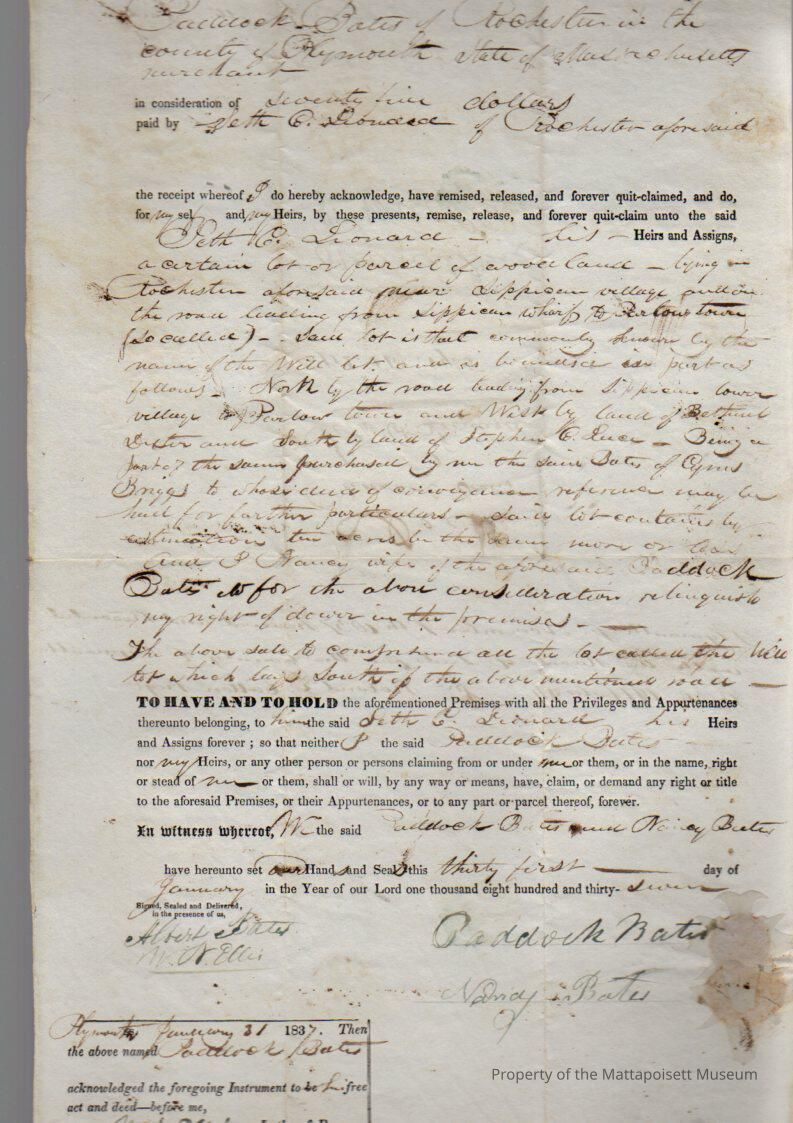 Paddock Bates of Rochester in the
county of Plymouth State of Massachusetts
merchant
in consideration of seventy five dollars
paid by Seth C. Leonard of Rochester aforesaid
the receipt whereof I do hereby acknowledge, have remised, released, and forever quit-claimed, and do,
for my self and my Heirs, by these presents, remise, release, and forever quit-claim unto the said
Seth C. Leonard - his - Heirs and Assigns,
a certain lot or parcel of wood land - lying in
Rochester aforesaid near Sippican village and on
the road leading from Sippican wharf to Parlow town
(so called) - Said lot is that commonly known by the
name of the Will lot and is bounded in part as
follows - North by the road leading from Sippican lower
village to Parlow town and West by land of
Dexter and South by land of Stephen C. Luce - Being a
part of the same purchased by me the said Bates of Cyrus
Briggs to whose deed of conveyance reference may be
had for farther particulars - said lot contains by
estimation ten acres be the same more or less
And I Nancy wife of the aforesaid Paddock
Bates do for the above consideration relinquish
my right of dower in the premises -
The above sale to comprise all the lot called the Will
lot which lays South of the above mentioned road -
TO HAVE AND TO HOLD the aforementioned Premises with all the Privileges and Appurtenances
thereunto belonging, to him the said Seth C. Leonard his Heirs
and Assigns forever ; so that neither I the said Paddock Bates -
nor my Heirs, or any other person or persons claiming from or under me or them, or in the name, right
or stead of me or them, shall or will, by any way or means, have, claim, or demand any right or title
to the aforesaid Premises, or their Appurtenances, or to any part or parcel thereof, forever.
In witness whereof, We the said Paddock Bates and Nancy Bates
have hereunto set our Hands and Seals this thirty first day of
January in the Year of our Lord one thousand eight hundred and thirty- seven
Signed, Sealed and Delivered,
in the presence of us,
Albert Bates
W. N. Ellis
Paddock Bates
Nancy Bates
Plymouth January 31 1837. Then
the above named Paddock Bates
acknowledged the foregoing Instrument to be his free
act and deed—before me,
Property of the Mattapoisett Museum